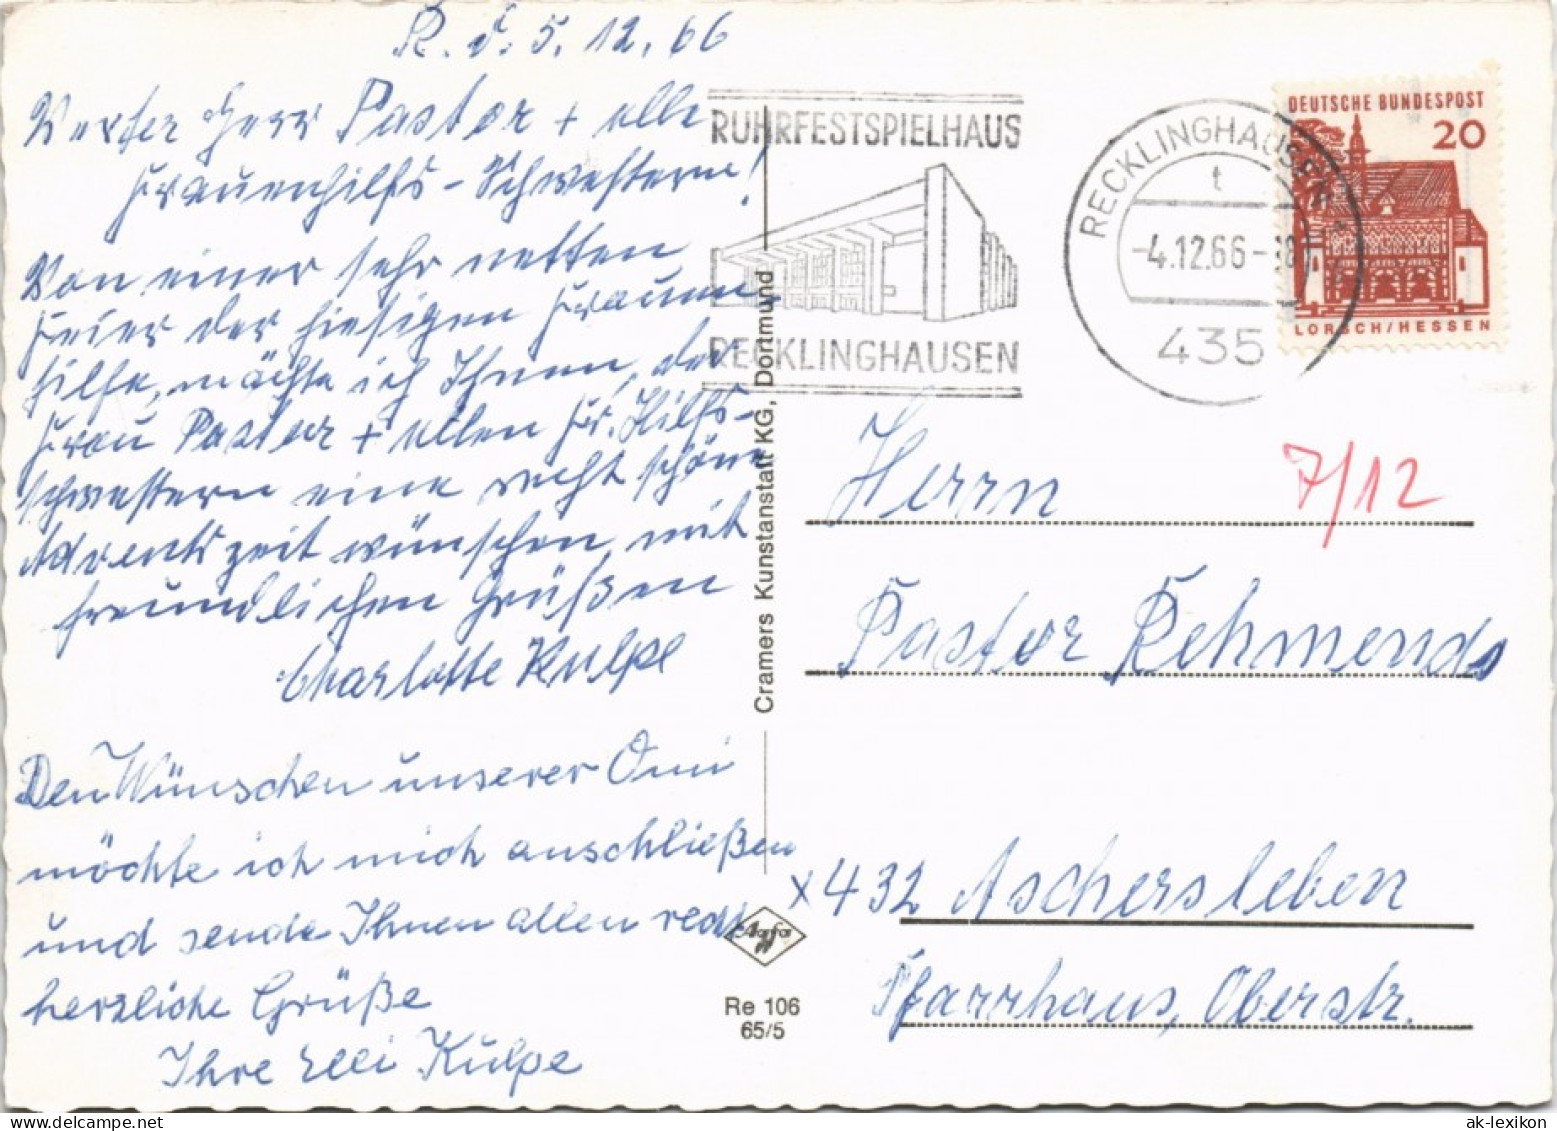 R. d. 5. 12. 66
Werter Herr Pastor + alle
Frauenhilfs-Schwestern!
Von einer sehr netten
Feier der hiesigen Frauen-
hilfe, möchte ich Ihnen, der
Frau Pastor + allen Fr. Hilfs-
schwestern eine recht schöne
Adventszeit wünschen, mit
freundlichen Grüßen
Charlotte Kulpe
Den Wünschen unserer Omi
möchte ich mich anschließen
und sende Ihnen allen recht
herzliche Grüße
Ihre Elli Kulpe
Cramers Kunstanstalt KG, Dortmund
Agfa
Re 106
65/5
RUHRFESTSPIELHAUS
RECKLINGHAUSEN
RECKLINGHAUSEN
t
-4.12.66-
435
DEUTSCHE BUNDESPOST
20
LORSCH/HESSEN
7/12
Herrn
Pastor Rehmends
x432 Aschersleben
Pfarrhaus, Oberstr.
ak-lexikon